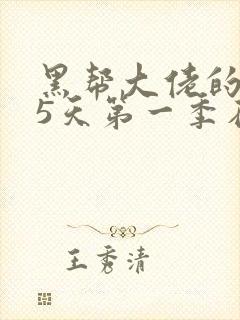 黑帮大佬的
5天第一季
王秀清